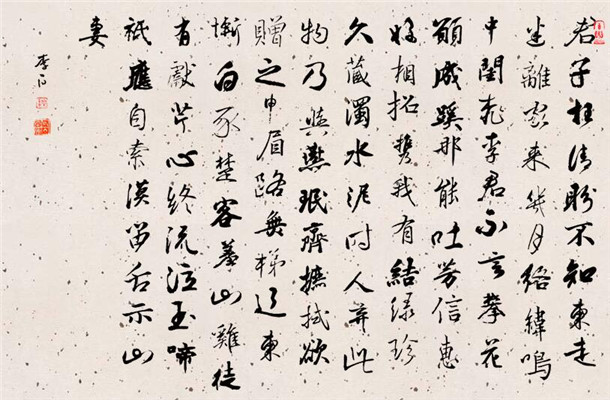 君子枉清盼不知東走
迷離家來幾月絡緯鳴
中閨桃李君不言攀花
願成蹊那能吐芳信惠
好相招攜我有結綠珍
久藏濁水泥時人弃此
物乃與燕珉齊摭拭欲
贈之申眉路無梯遼東
慚白豕楚客羞山雞徒
有獻芹心終流泣玉啼
祗應自索漠留舌示山
妻
李白